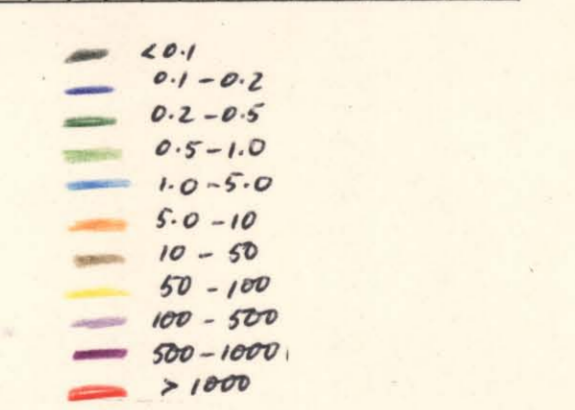 < 0.1
0.1 - 0.2
0.2 - 0.5
0.5 - 1.0
1.0 - 5.0
5.0 - 10
10 - 50
50 - 100
100 - 500
500 - 1000
> 1000